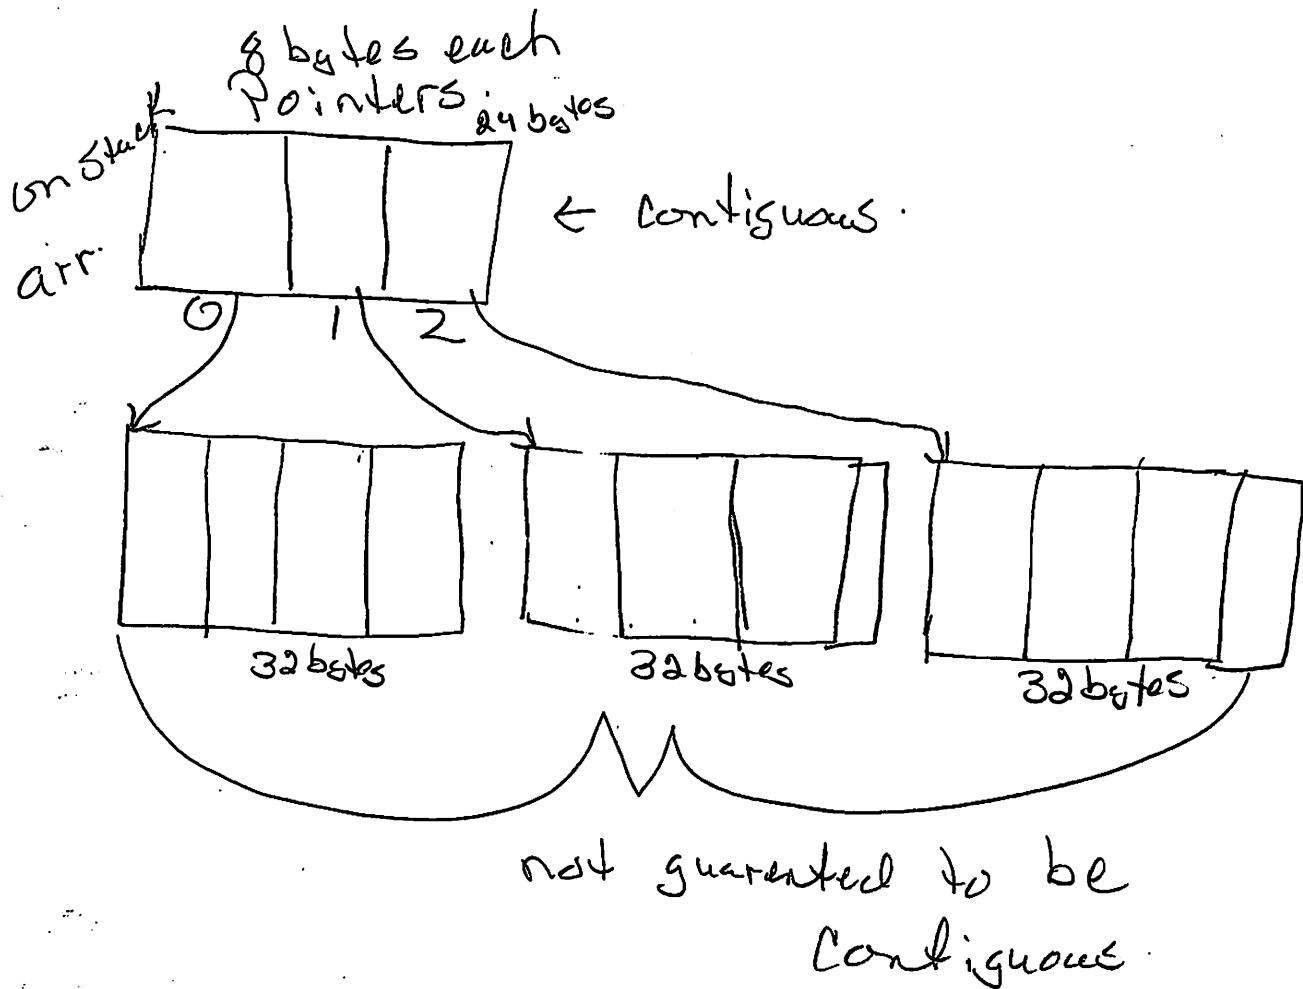 8 bytes each
Pointers.
24 bytes
on Stack
arr.
← contiguous.
0 1 2
32 bytes
32 bytes
32 bytes
not guarented to be
Contiguous.